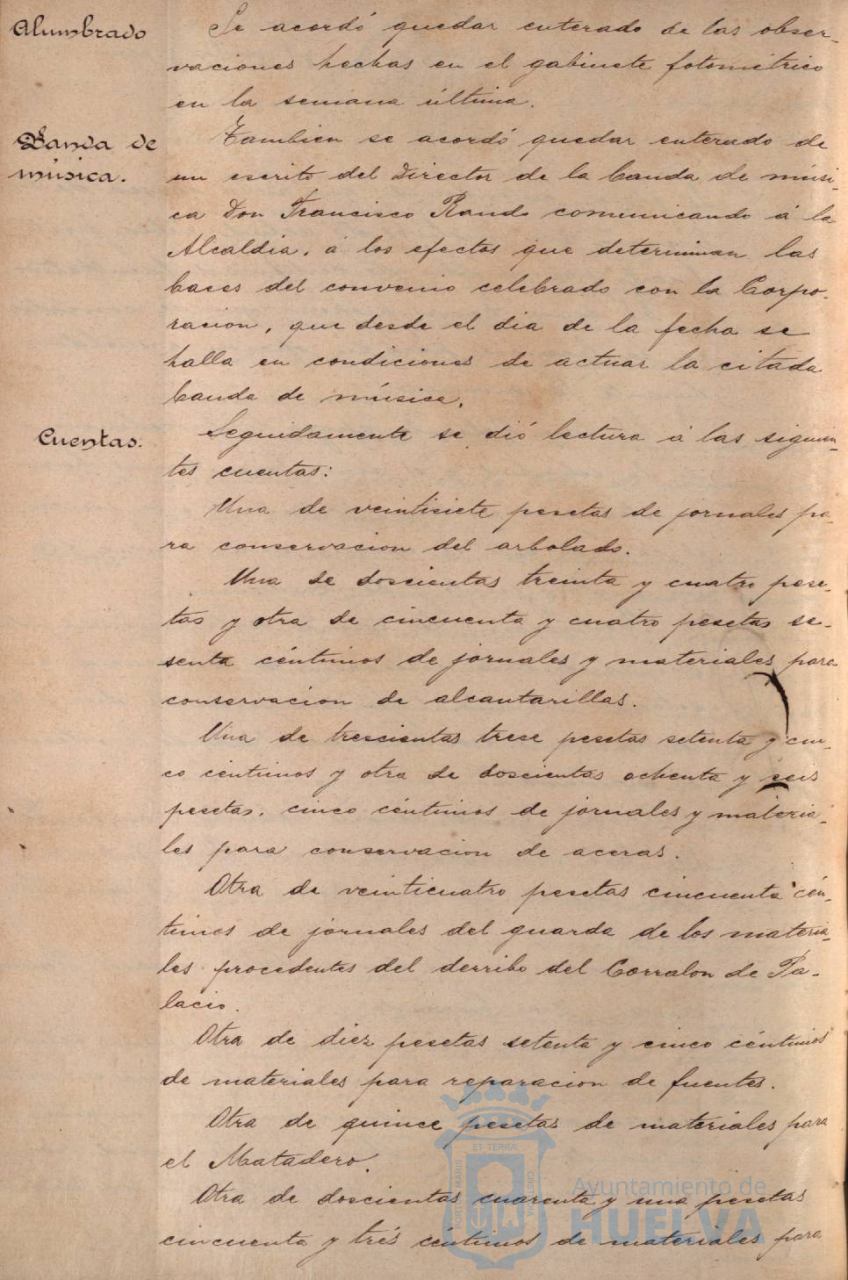 Alumbrado
Se acordó quedar enterado de las obser-
vaciones hechas en el gabinete fotométrico
en la semana última.
Banda de
música.
Tambien se acordó quedar enterado de
un escrito del Director de la banda de músi-
ca Don Francisco Rando comunicando á la
Alcaldia, á los efectos que determinan las
bases del convenio celebrado con la Corpo-
racion, que desde el dia de la fecha se
halla en condiciones de actuar la citada
banda de música.
Cuentas.
Seguidamente se dió lectura á las siguien-
tes cuentas:
Una de veintisiete pesetas de jornales pa-
ra conservacion del arbolado.
Una de doscientas treinta y cuatro pese-
tas y otra de cincuenta y cuatro pesetas se-
senta céntimos de jornales y materiales para
conservacion de alcantarillas.
Una de trescientas trece pesetas setenta y cin-
co centimos y otra de doscientas ochenta y seis
pesetas, cinco céntimos de jornales y materia-
les para conservacion de aceras.
Otra de veinticuatro pesetas cincuenta cén-
timos de jornales del guarda de los materia-
les procedentes del derribo del Corralon de Pa-
lacio.
Otra de diez pesetas setenta y cinco céntimos
de materiales para reparacion de fuentes.
Otra de quince pesetas de materiales para
el Matadero.
Otra de doscientas cuarenta y una pesetas
cincuenta y trés centimos de materiales para
Ayuntamiento de
HUELVA